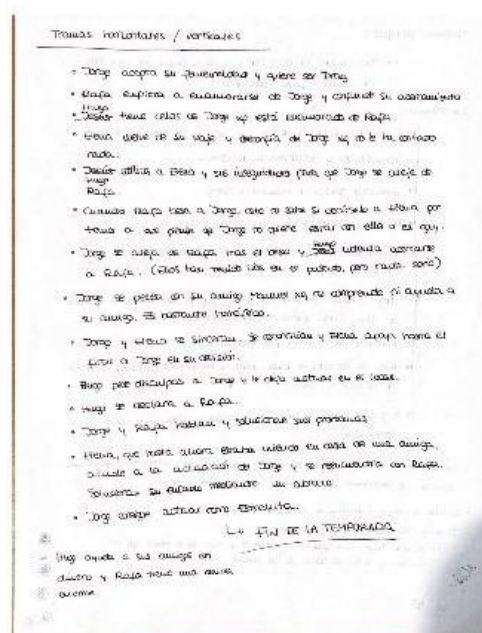 Tramas horizontales / verticales
• Jorge acepta su feminidad y quiere ser Drag
• Rafa empieza a enamorarse de Jorge y su acercamiento
Hugo
• Jesús tiene celos de Jorge xq está enamorado de Rafa.
• Elena vuelve de su viaje y desconfía de Jorge xq no le ha contado
nada.
• Jesús utiliza a Elena y sus inseguridades para que Jorge se aleje de
Hugo
Rafa.
• Cuando Rafa besa a Jorge, este no sabe si decírselo a Elena por
temor a que piense que Jorge no quiere estar con ella o es gay.
• Jorge se aleja de Rafa tras el beso y Jesús intenta acercarse
Hugo
a Rafa. (Ellos han tenido líos en el pasado, pero nada serio)
• Jorge se pelea con su amigo Manuel xq no comprende ni ayuda a
su amigo. Es bastante homófobo.
• Jorge y Elena se sinceran. Se reconcilian y Elena apoya
a Jorge en su decisión.
• Hugo pide disculpas a Jorge y le deja actuar en el local.
• Hugo se declara a Rafa.
• Jorge y Rafa hablan y solucionan sus problemas
• Elena, que hasta ahora estaba viviendo en casa de una amiga,
acude a la actuación de Jorge y se reencuentra con Rafa.
Solucionan su enfado mediante un abrazo.
• Jorge actuar como
↳ FIN DE LA TEMPORADA
Hugo ayuda a sus amigos con
dinero y Rafa tiene una